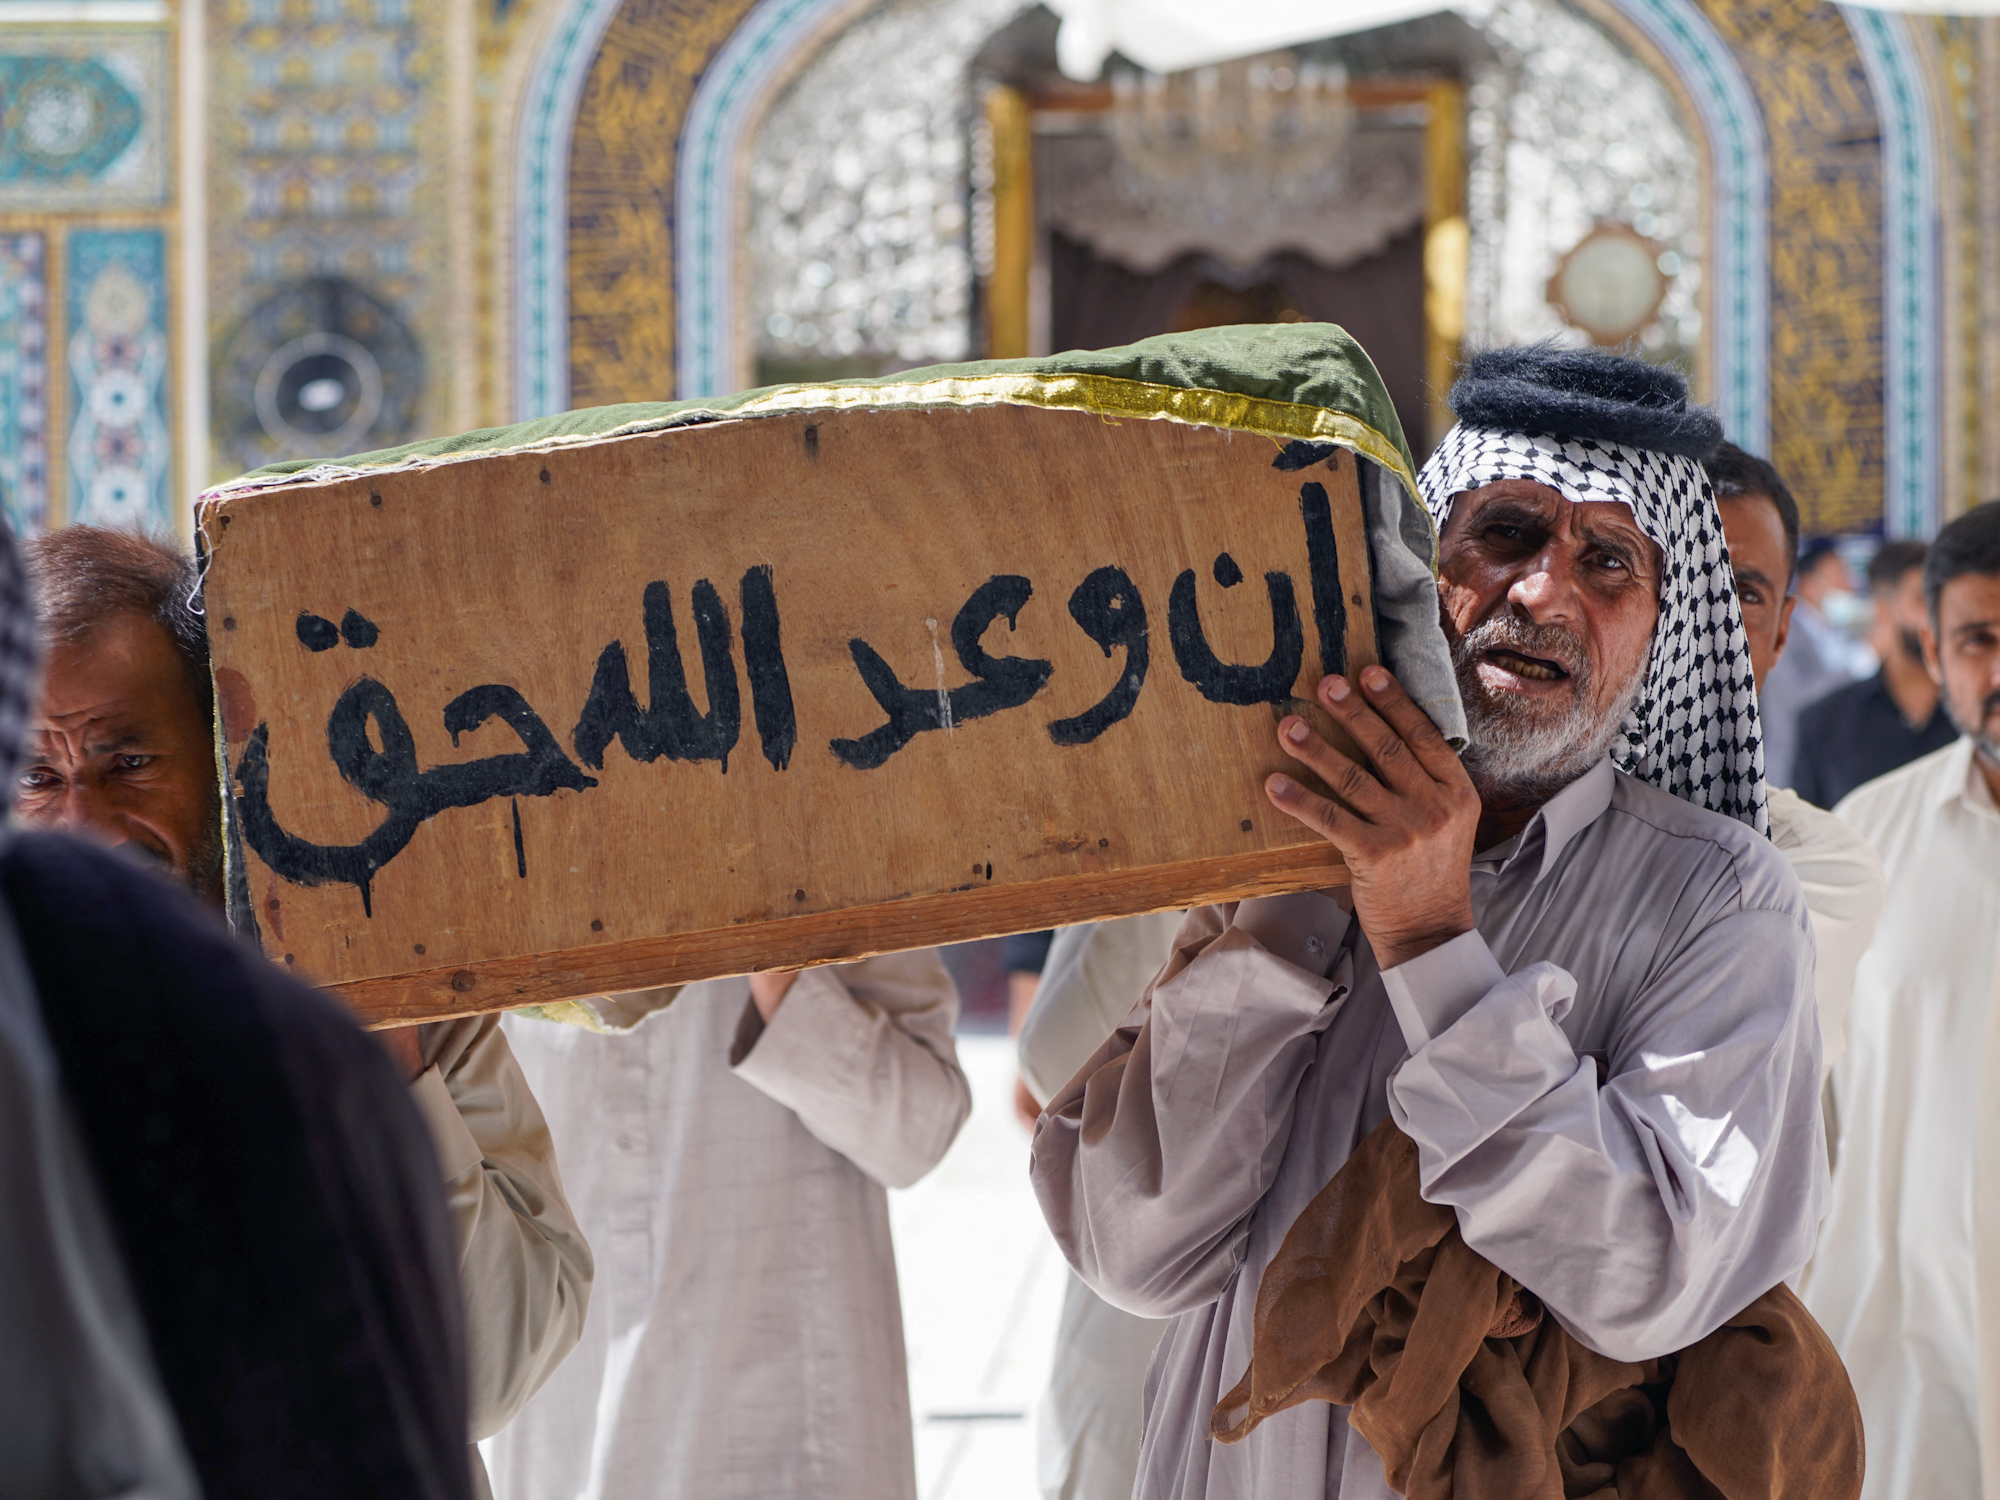 أن وعد الله حق